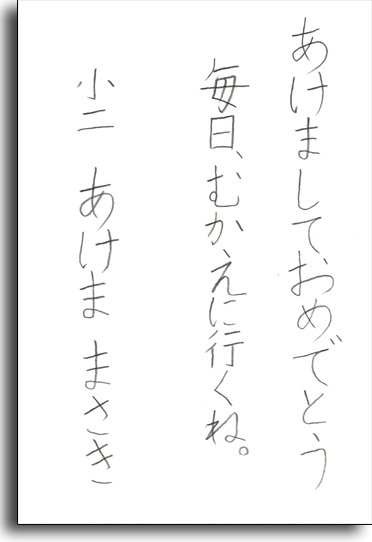 あけましておめでとう
毎日、むかえに行くね。
小二 あけま まさき